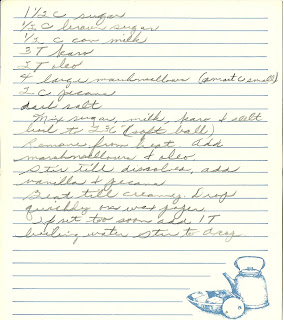 1 1/2 C sugar
1/2 C brown sugar
1/2 C can milk
3 T karo
3 T oleo
4 large marshmallow (or small)
2 C pecans
dash salt
Mix sugar, milk, karo & salt
boil to 236 (soft ball)
Remove from heat. Add
marshmallows & oleo.
Stir till dissolves, add
vanilla & pecans
Beat till creamy. Drop
quickly on wax paper
If set too soon add 1T
boiling water stir to drop